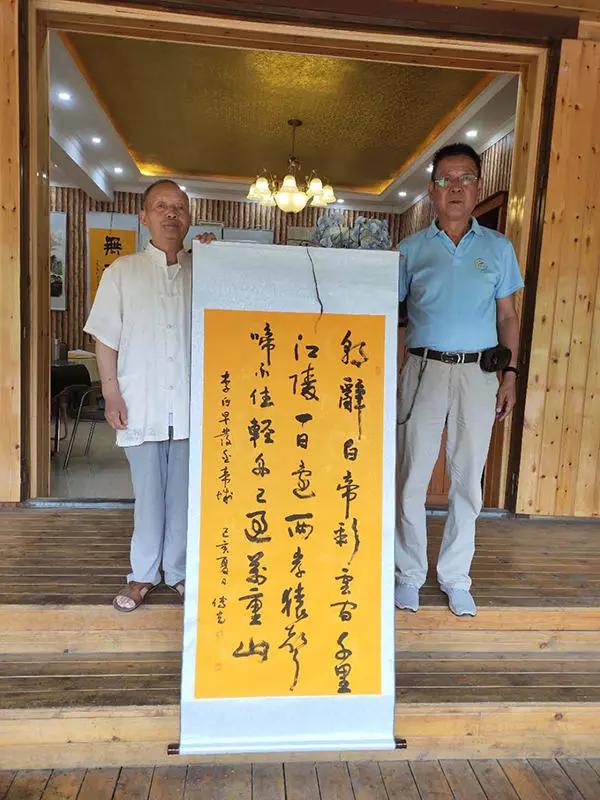 朝辭白帝彩雲間千里
江陵一日還兩岸猿聲
啼不住輕舟已過萬重山
李白早發白帝城 己亥夏日
無